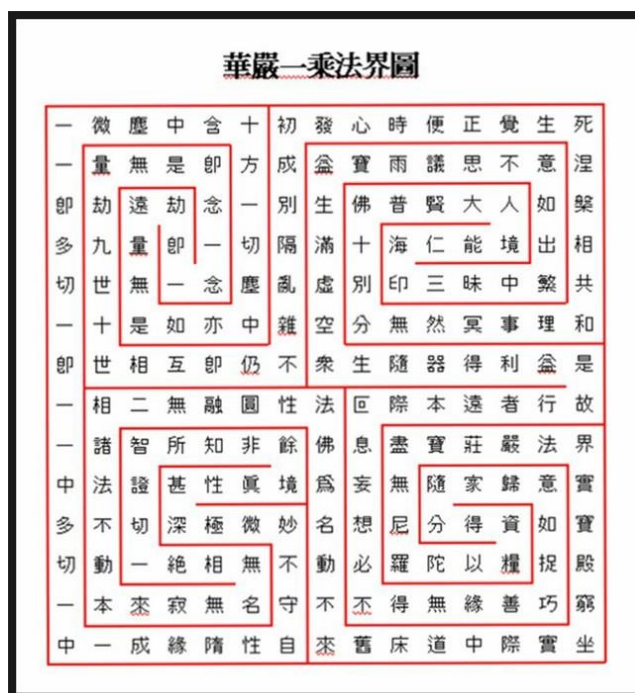 華嚴一乘法界圖
一微塵中含十初發心時便正覺生死
一量無是卽方成益寶雨議思不意涅
卽劫遠劫念一別生佛普賢大人如槃
多九量卽一切隔滿十海仁能境出相
切世無一念塵亂虛別印三昧中繁共
一十是如亦中雜空分無然冥事理和
卽世相互卽仍不衆生隨器得利益是
一相二無融圓性法叵際本遠者行故
一諸智所知非餘佛息盡寶莊嚴法界
中法證甚性眞境爲妄無隨家歸意實
多不切深極微妙名想尼分得資如寶
切動一絶相無不動必羅陀以糧捉殿
一本來寂無名守不不得無緣善巧窮
中一成緣隋性自來舊床道中際實坐